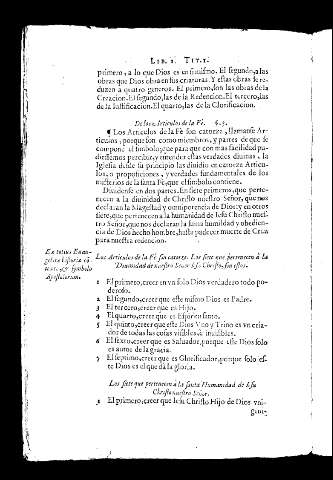 LIB. I. TIT. I.
primero, a lo que Dios es en si mismo. El segundo, a las
obras que Dios obra en sus criaturas. Y estas obras se re-
duzen a quatro generos. El primero, son las obras de la
Creacion. El segundo, las de la Redencion. El tercero, las
de la Iustificacion. El quarto, las de la Glorificacion.
De los Articulos de la Fè. §. 3.
¶ Los Articulos de la Fè son catorze, llamanse Ar-
ticulos, porque son como miembros, y partes de que se
compone el simbolo, que para que con mas facilidad pu-
diessemos percibir, y entender estas verdades diuinas, la
Iglesia desde su principio las diuidiò en catorze Articu-
los, o proposiciones, y verdades fundamentales de los
misterios de la santa Fè, que el simbolo contiene.
Diuidense en dos partes. En siete primeros, que perte-
necen a la diuinidad de Christo nuestro Señor, que nos
declaran la Magestad y omnipotencia de Dios: y en otros
siete, que pertenecen a la humanidad de Iesu Christo nues-
tro Señor, que nos declaran la suma humildad y obedien-
cia de Dios hecho hombre, hasta padecer muerte de Cruz
para nuestra redencion.
Ex totius Euan-
gelica historia
&c. & symbolo
Apostolorum.
Los Articulos de la Fè son catorze. Los siete que pertenecen à la
Diuinidad de nuestro Señor Iesu Christo, son estos.
1 El primero, creer en vn solo Dios verdadero todo po-
deroso.
2 El segundo, creer que este mismo Dios es Padre.
3 El tercero, creer que es Hijo.
4 El quarto, creer que es Espiritu santo.
5 El quinto, creer que este Dios Vno y Trino es vn cria-
dor de todas las cosas visibles & inuisibles.
6 El sexto, creer que es Saluador, porque este Dios solo
es autor de la gracia.
7 El septimo, creer que es Glorificador, porque solo es-
te Dios es el que dà la gloria.
Los siete que pertenecen à la santa Humanidad de Iesu
Christo nuestro Señor.
1 El primero, creer que Iesu Christo Hijo de Dios vni-
geni-